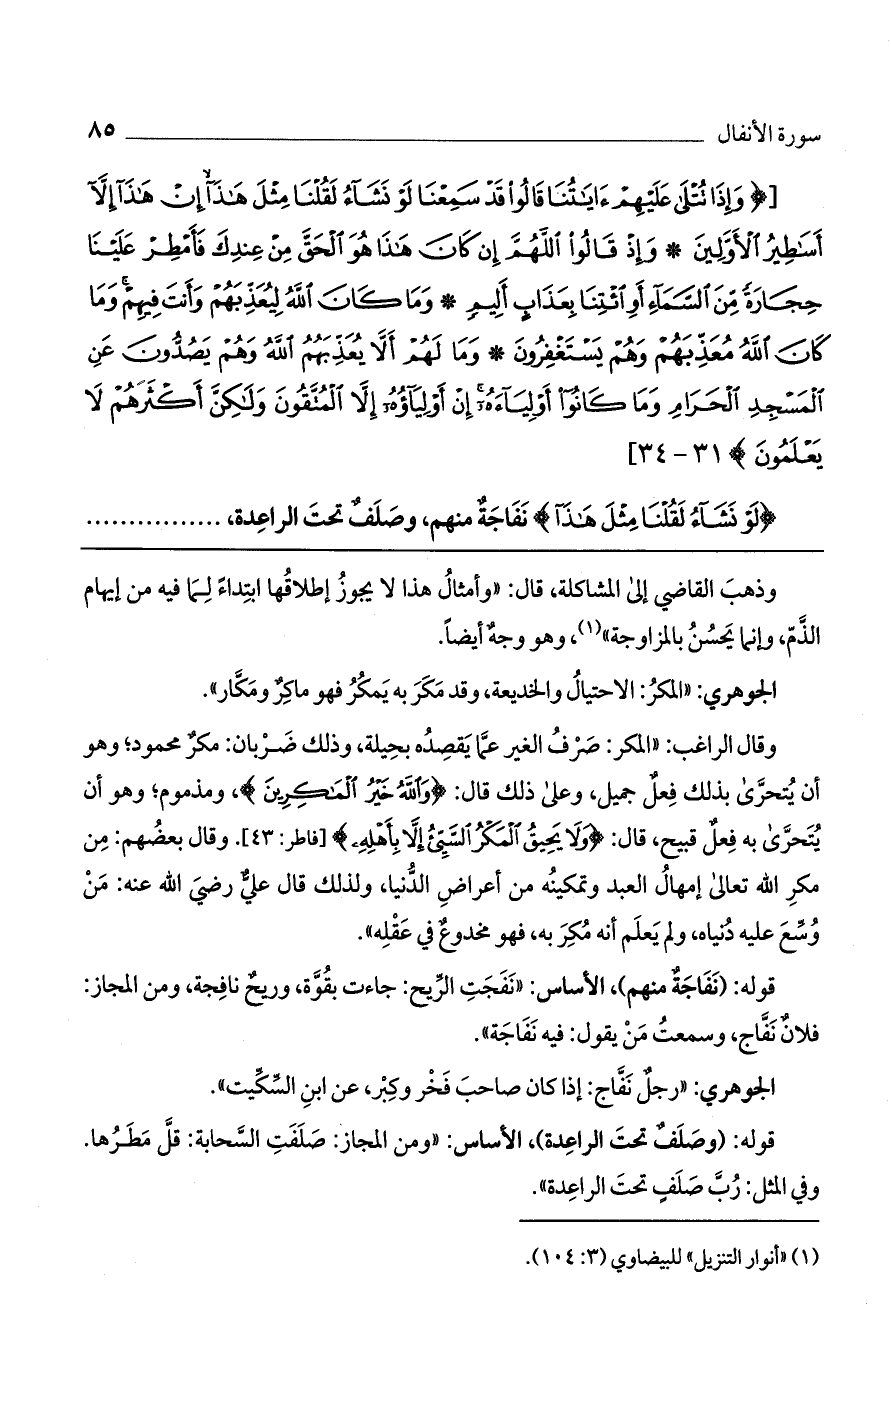 سورة الأنفال ــــــــــــــــــــــــــــــــــــــــ ٨٥
[﴿ وَإِذَا تُتْلَىٰ عَلَيْهِمْ ءَايَٰتُنَا قَالُوا۟ قَدْ سَمِعْنَا لَوْ نَشَآءُ لَقُلْنَا مِثْلَ هَٰذَآ ۙ إِنْ هَٰذَآ إِلَّآ
أَسَٰطِيرُ ٱلْأَوَّلِينَ * وَإِذْ قَالُوا۟ ٱللَّهُمَّ إِن كَانَ هَٰذَا هُوَ ٱلْحَقَّ مِنْ عِندِكَ فَأَمْطِرْ عَلَيْنَا
حِجَارَةً مِّنَ ٱلسَّمَآءِ أَوِ ٱئْتِنَا بِعَذَابٍ أَلِيمٍ * وَمَا كَانَ ٱللَّهُ لِيُعَذِّبَهُمْ وَأَنتَ فِيهِمْ ۚ وَمَا
كَانَ ٱللَّهُ مُعَذِّبَهُمْ وَهُمْ يَسْتَغْفِرُونَ * وَمَا لَهُمْ أَلَّا يُعَذِّبَهُمُ ٱللَّهُ وَهُمْ يَصُدُّونَ عَنِ
ٱلْمَسْجِدِ ٱلْحَرَامِ وَمَا كَانُوٓا۟ أَوْلِيَآءَهُۥٓ ۚ إِنْ أَوْلِيَآؤُهُۥٓ إِلَّا ٱلْمُتَّقُونَ وَلَٰكِنَّ أَكْثَرَهُمْ لَا
يَعْلَمُونَ ﴾ ٣١ - ٣٤]
﴿لَوْ نَشَآءُ لَقُلْنَا مِثْلَ هَٰذَآ ﴾ نَفَاجَةٌ منهم، وصَلَفٌ تحتَ الراعِدة، ................
وذهبَ القاضي إلىٰ المشاكلة، قال: «وأمثالُ هذا لا يجوزُ إطلاقُها ابتِداءً لِـمَا فيه من إيهام
الذَّمّ، وإنما يَحسُنُ بالمزاوجة»(١)، وهو وجهٌ أيضاً.
الجوهري: «المكرُ: الاحتيالُ والخديعة، وقد مَكَرَ به يَمكُرُ فهو ماكِرٌ ومَكَّار».
وقال الراغب: «المكر: صَرْفُ الغير عمَّا يَقصِدُه بحِيلة، وذلك ضَـرْبان: مكرٌ محمود؛ وهو
أن يُتحرَّىٰ بذلك فِعلٌ جميل، وعلىٰ ذلك قال: ﴿وَٱللَّهُ خَيْرُ ٱلْمَٰكِرِينَ ﴾، ومذموم؛ وهو أن
يُتَحرَّىٰ به فِعلٌ قبيح، قال: ﴿وَلَا يَحِيقُ ٱلْمَكْرُ ٱلسَّيِّئُ إِلَّا بِأَهْلِهِۦ ﴾ [فاطر: ٤٣]. وقال بعضُهم: مِن
مكرِ الله تعالىٰ إمهالُ العبد وتمكينُه من أعراضِ الدُّنيا، ولذلك قال عليٌّ رضيَ الله عنه: مَنْ
وُسِّعَ عليه دُنياه، ولم يَعلَم أنه مُكِرَ به، فهو مخدوعٌ في عَقْلِه».
قوله: (نَفَاجَةٌ منهم)، الأساس: «نَفَجَتِ الرِّيح: جاءت بقُوَّة، وريحٌ نافِجة، ومن المجاز:
فلانٌ نَفَّاج، وسمعتُ مَنْ يقول: فيه نَفَاجَة».
الجوهري: «رجلٌ نَفَّاج: إذا كان صاحبَ فَخْر وكِبْر، عن ابنِ السِّكِّيت».
قوله: (وصَلَفٌ تحتَ الراعِدة)، الأساس: «ومن المجاز: صَلَفَتِ السَّحابة: قلَّ مَطَـرُها.
وفي المثل: رُبَّ صَلَفٍ تحتَ الراعِدة».
(١) «أنوار التنزيل» للبيضاوي (٣: ١٠٤).